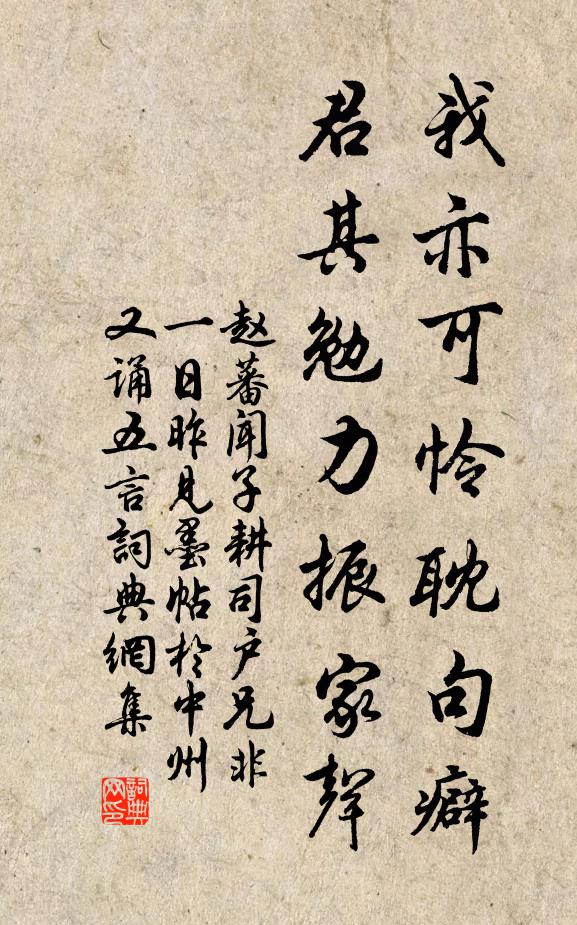 我亦可怜耽句癖
君其勉力振家聲
赵蕃闻子耕司户兄非
一日昨见墨帖於中州
又诵五言詞典網集
詞典网印